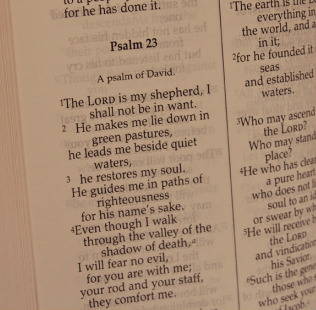 for he has done it.
Psalm 23
A psalm of David.
1The LORD is my shepherd, I
shall not be in want.
2 He makes me lie down in
green pastures,
he leads me beside quiet
waters,
3 he restores my soul.
He guides me in paths of
righteousness
for his name's sake.
4Even though I walk
through the valley of the
shadow of death,a
I will fear no evil,
for you are with me;
your rod and your staff,
they comfort me.
1The earth is the
everything in
the world, and a
in it;
2for he founded it
seas
and established
waters.
3Who may ascend
the LORD?
Who may stand
place?
4He who has clean
a pure heart
who does not
soul to an
or swear by
5He will receive
the LORD
and vindication
his Savior.
6Such is the gene
those who
who seek your